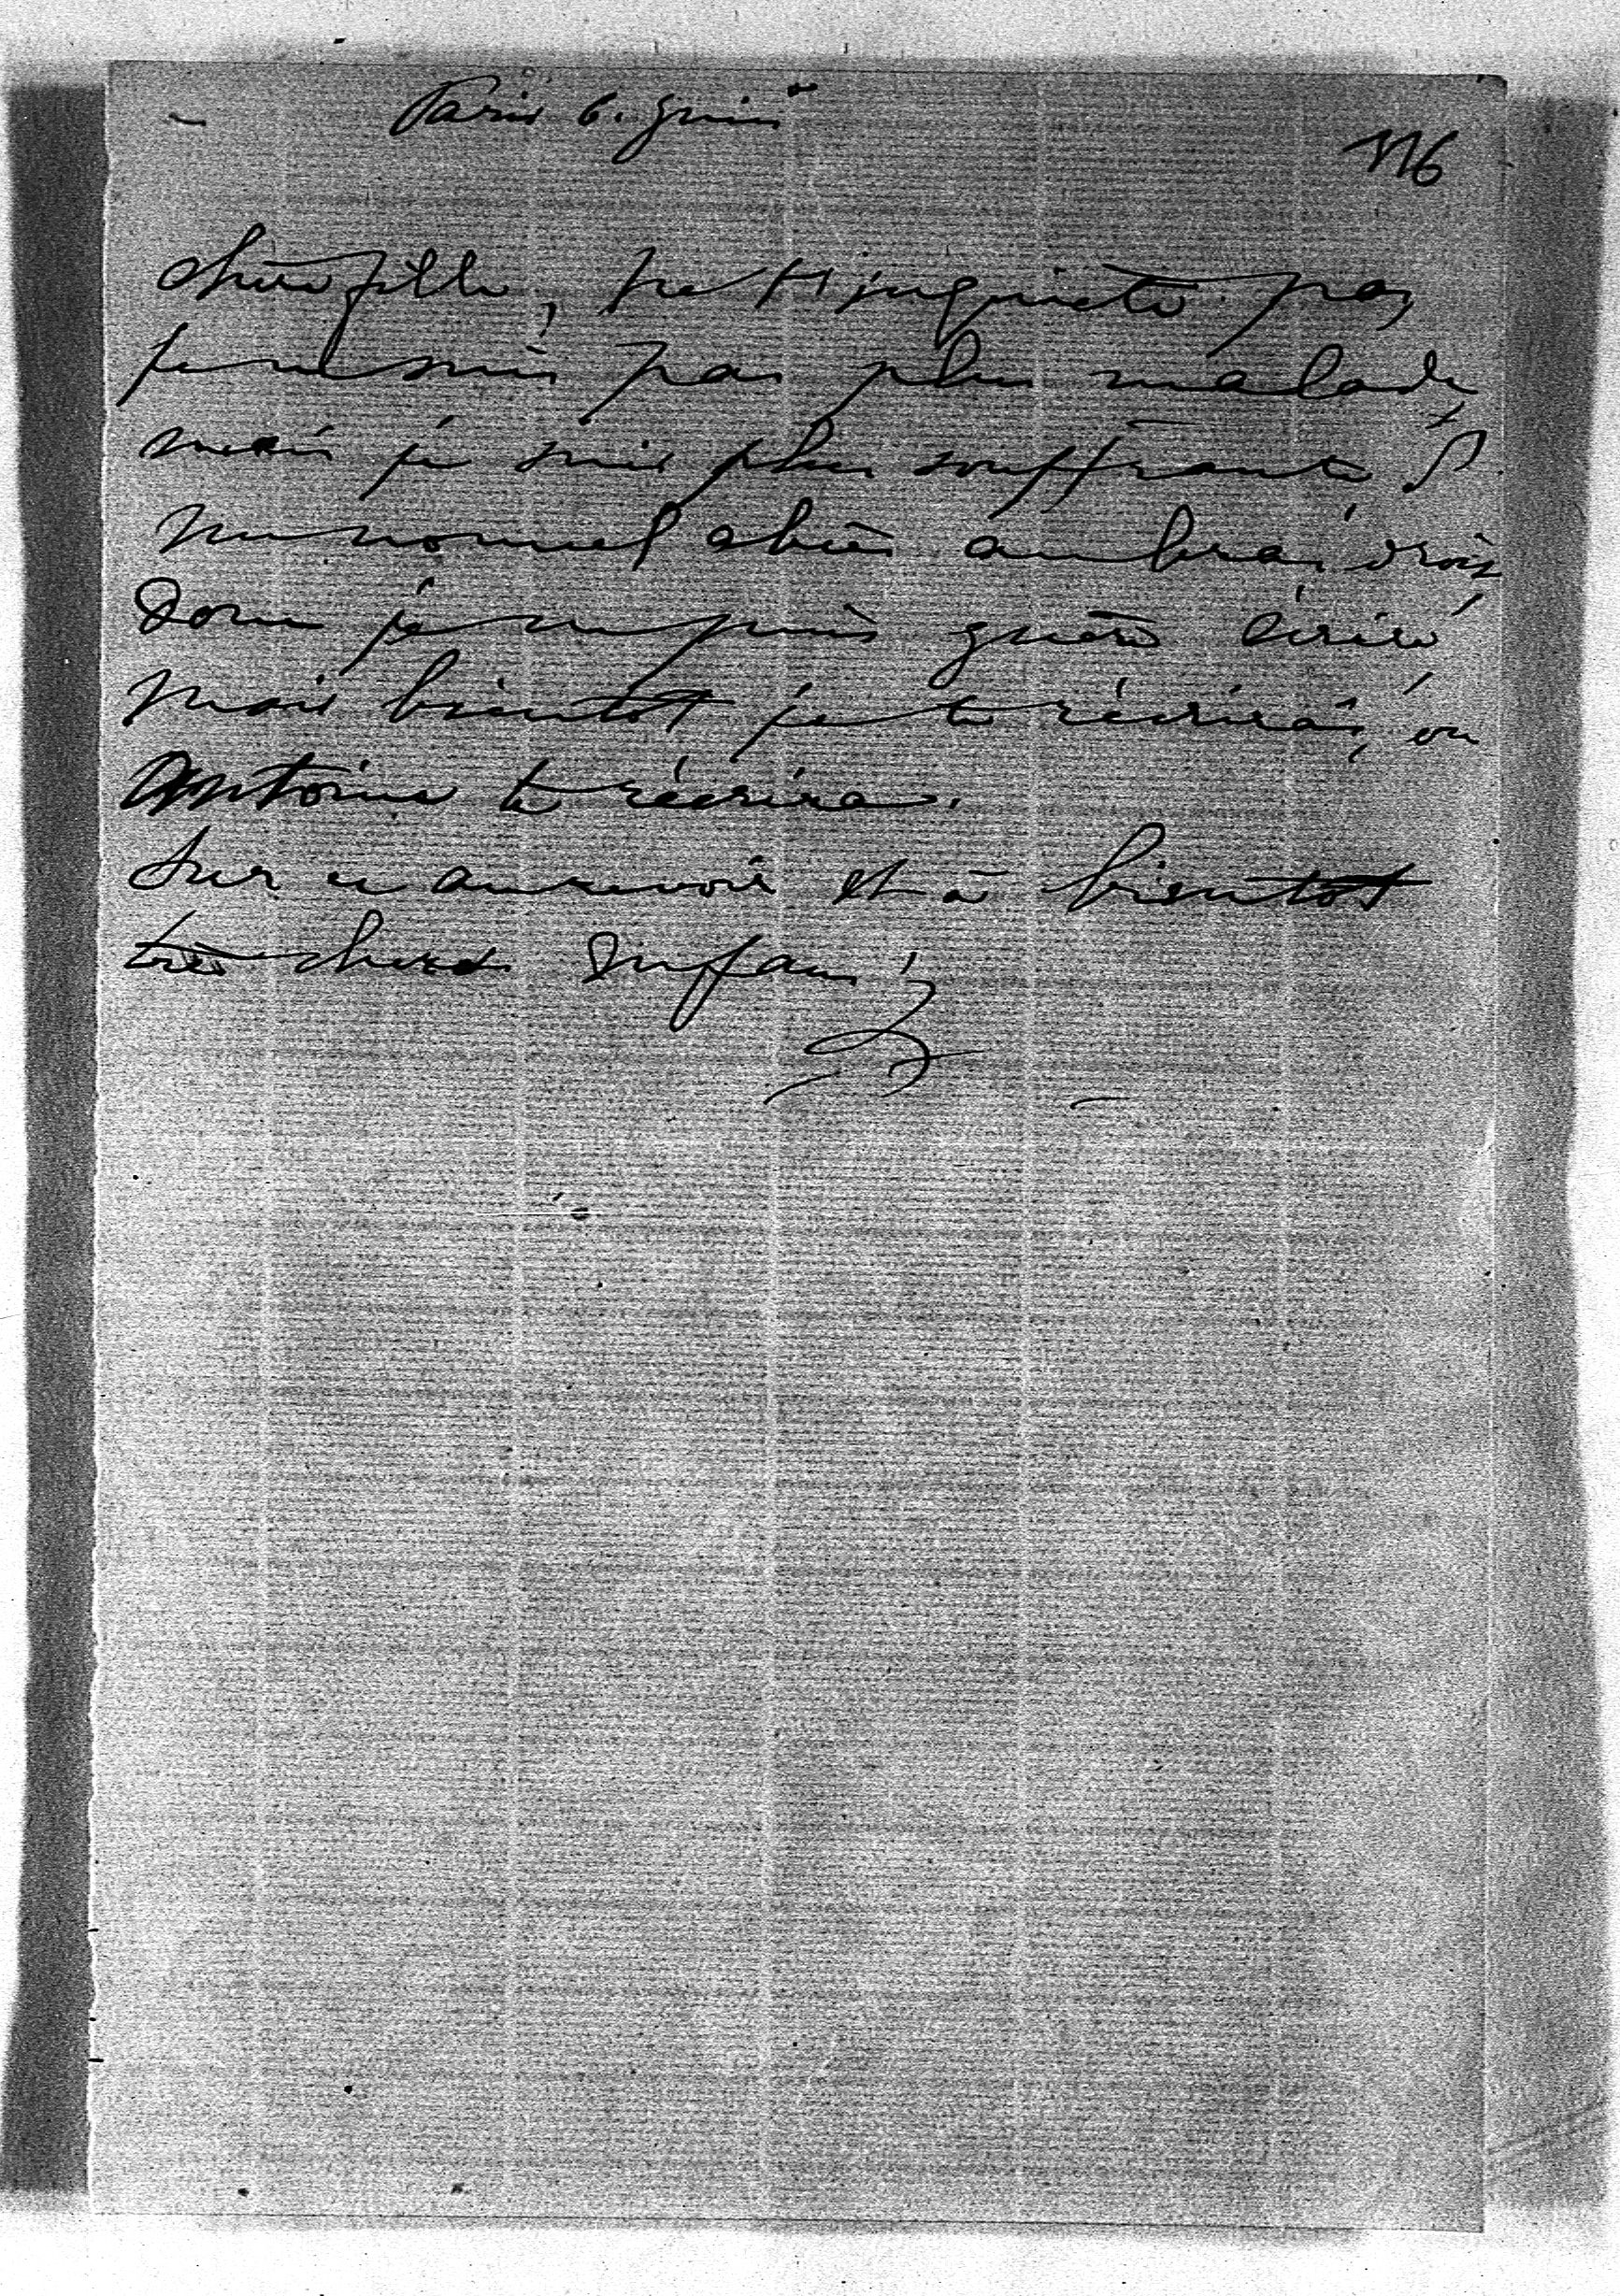 Paris 6. Juin
116
chère fille, ne t'inquiète pas
je ne suis pas plus malade,
mais je suis plus souffrante
un nouvel abcès au bras droit
Donc je ne puis guère écrire,
Mais bientôt je te récrirai, ou
Antoine te récrira.
Sur ce au revoir et à bientôt
très chers Enfans